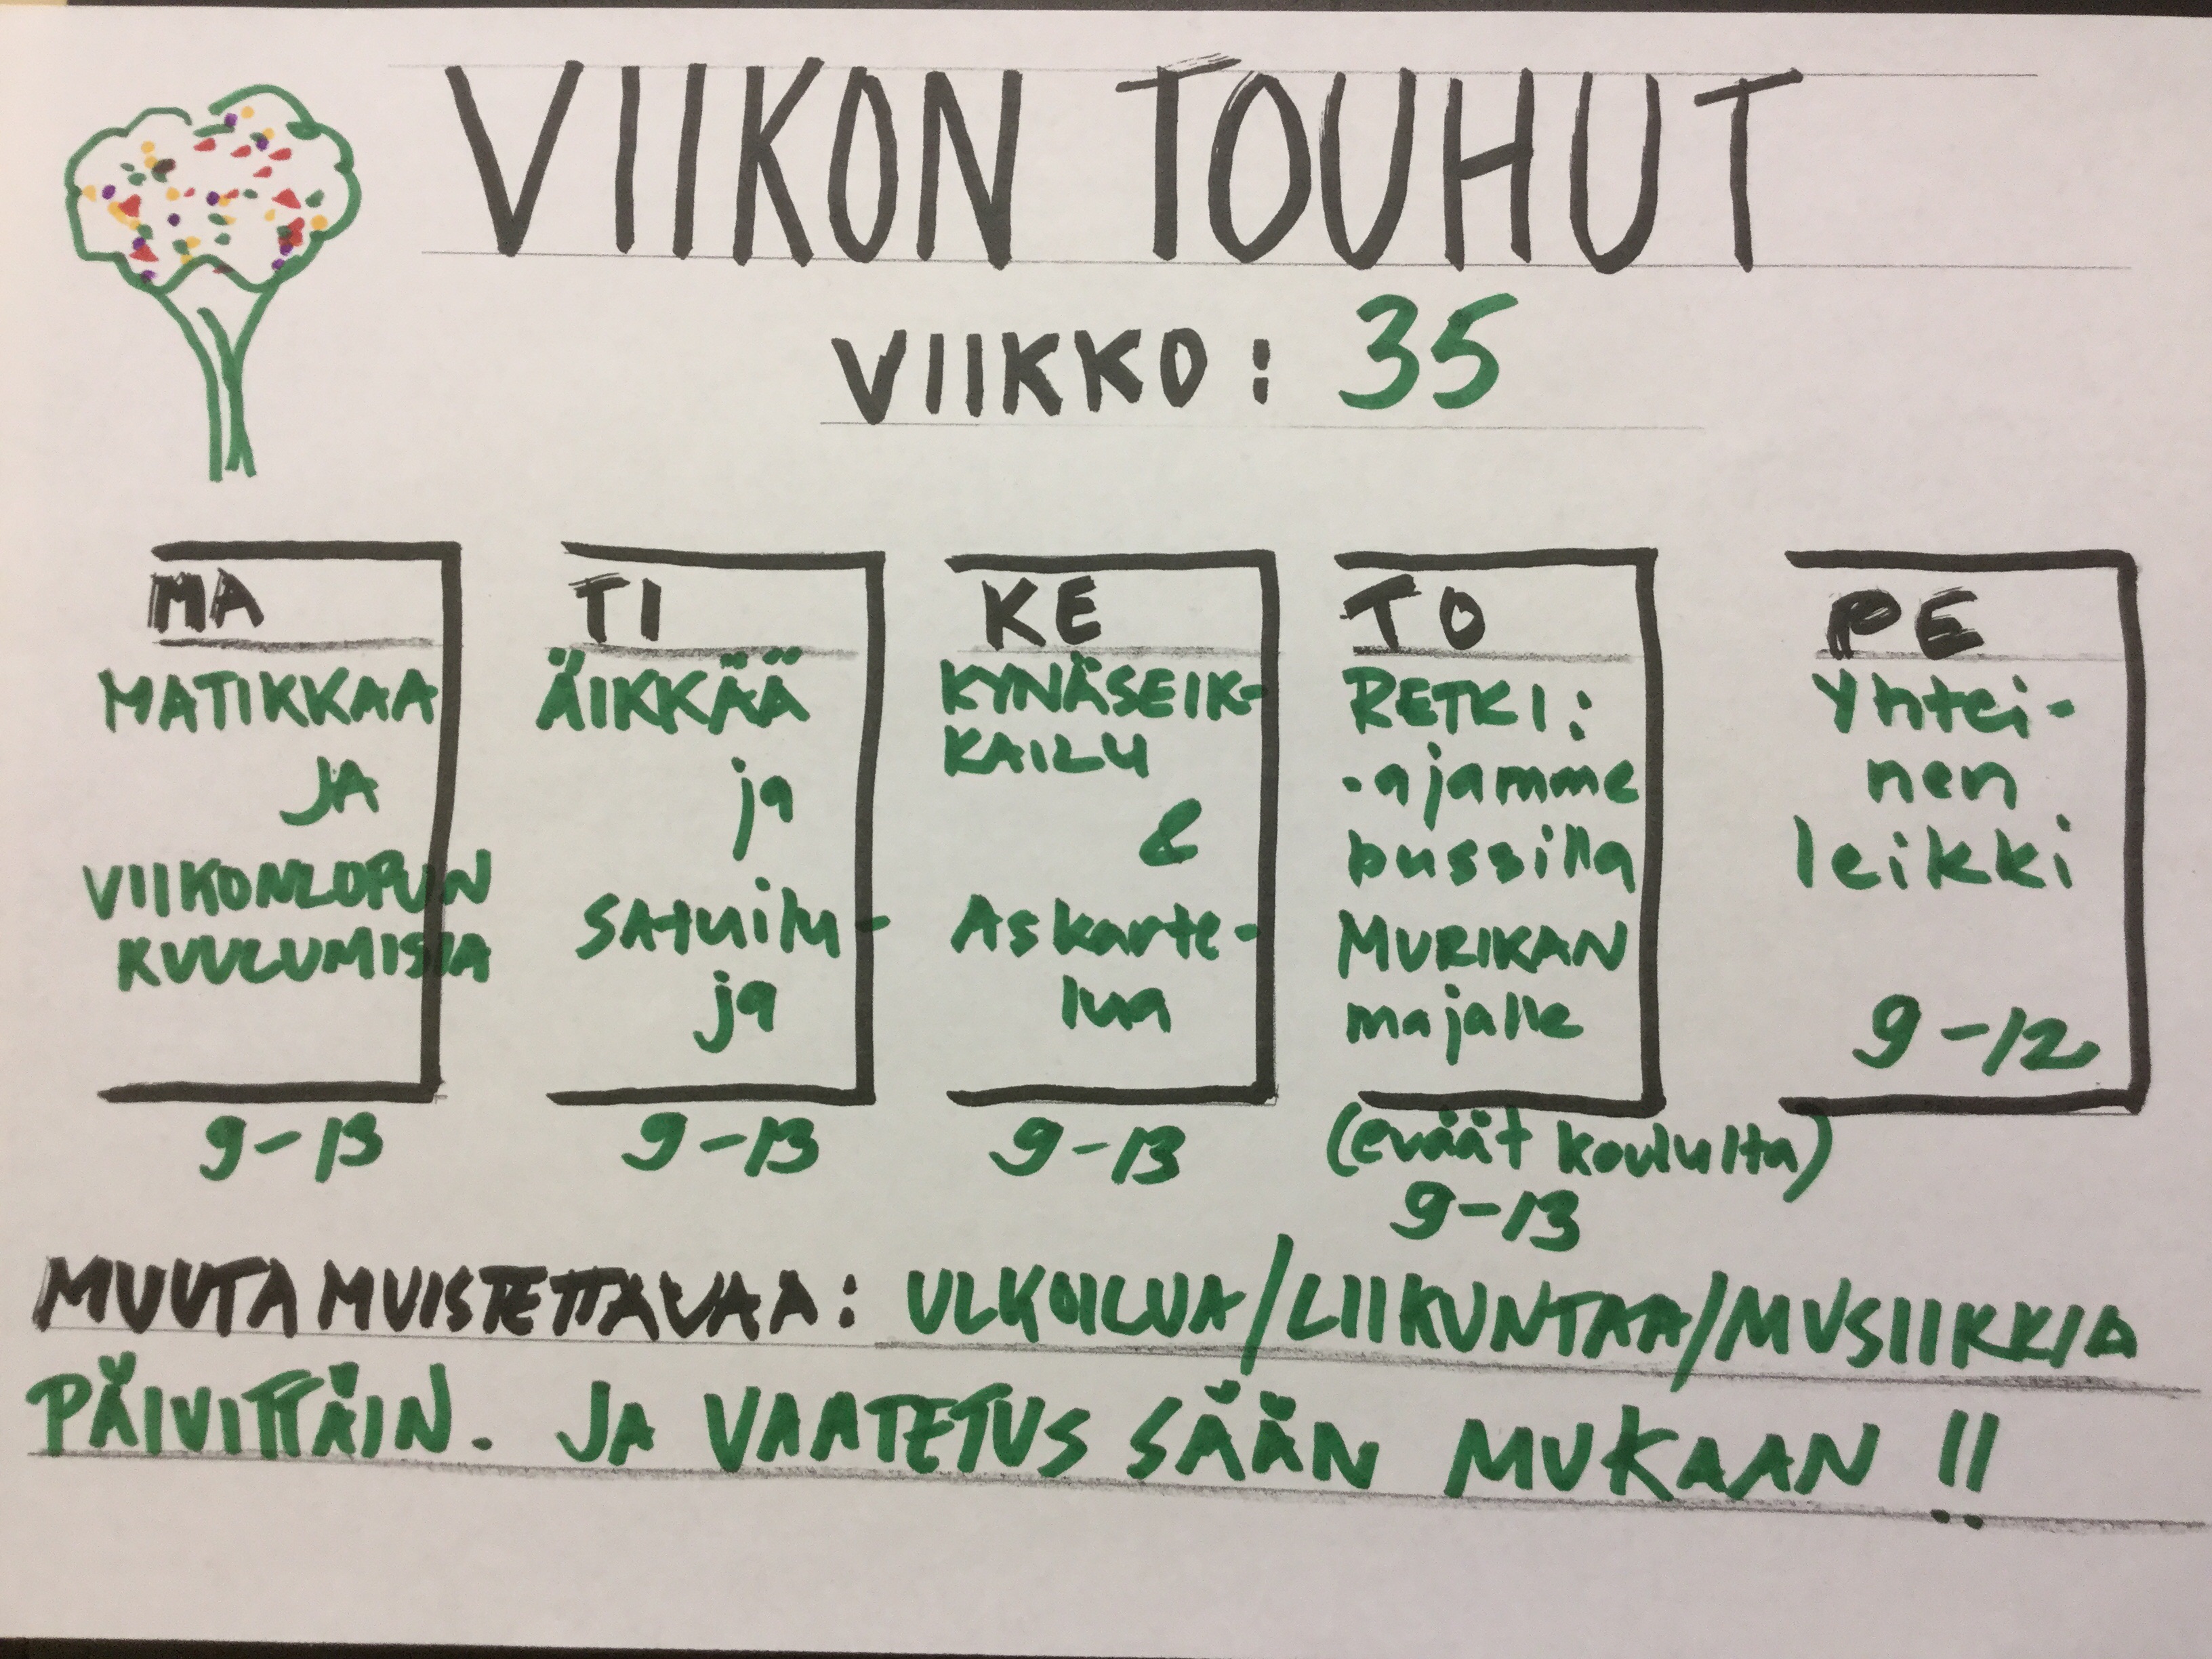 VIIKON TOUHUT
VIIKKO: 35
MA
MATIKKAA
JA
VIIKONLOPUN
KUULUMISIA
9-13
TI
ÄIKKÄÄ
ja
Satuilu-
ja
9-13
KE
KYNÄSEIK-
KAILU
&
Askarte-
lua
9-13
TO
RETKI:
-ajamme
bussilla
MURIKAN
majalle
(eväät koululta)
9-13
PE
Yhtei-
nen
leikki
9-12
MUUTA MUISTETTAVAA: ULKOILUA/LIIKUNTAA/MUSIIKKIA
PÄIVITTÄIN. JA VAATETUS SÄÄN MUKAAN !!